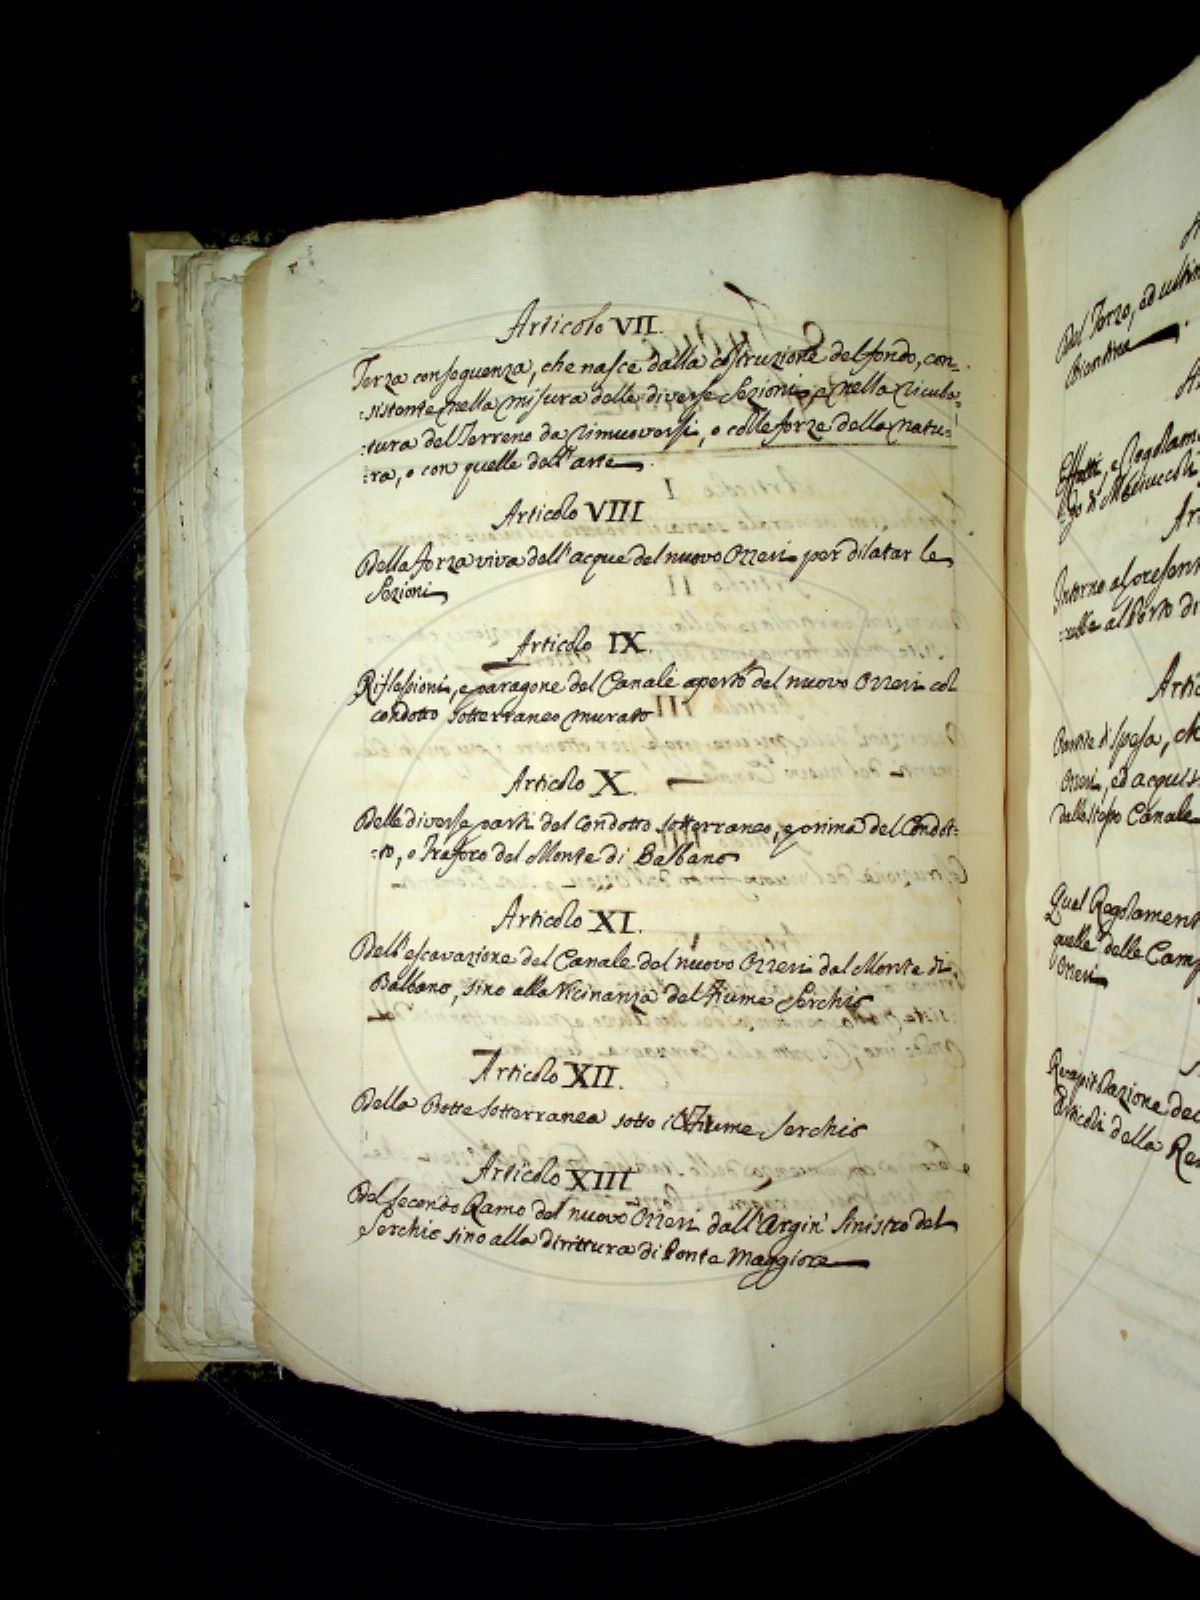 Articolo VII.
Terza conseguenza, che nasce dalla costruzione del fondo, con=
=sistente nella misura delle diverse Sezioni, e nella
=tura del Terreno da rimuoversi, o colle forze della natu=
=ra, o con quelle dell'arte
Articolo VIII
Della forza viva dell'acque del nuovo Ozzeri per dilatar le
Sezioni
Articolo IX.
Riflessioni, e paragone del Canale aperto del nuovo Ozzeri col
condotto sotterraneo murato
Articolo X.
Delle diverse parti del condotto sotterraneo, e prima del Condot=
=to, o Traforo del Monte di Balbano
Articolo XI.
Dell'escavazione del Canale del nuovo Ozzeri dal Monte di
Balbano, sino alla Vicinanza del Fiume Serchio
Articolo XII.
Della Botte sotterranea sotto il Fiume Serchio
Articolo XIII
Del secondo Ramo del nuovo Ozzeri dall'Argin' sinistro del
Serchio sino alla dirittura di Ponte Maggiore
Del Terzo, ed ultim
Bientina
Effetti, e
Intorno al
al Porto di
Partite di spesa, ch
Ozzeri, ed acquis
dello stesso Canale
Qual Regolament
quelle delle Camp
Ozzeri
Recapitolazione dec
Articoli della Re